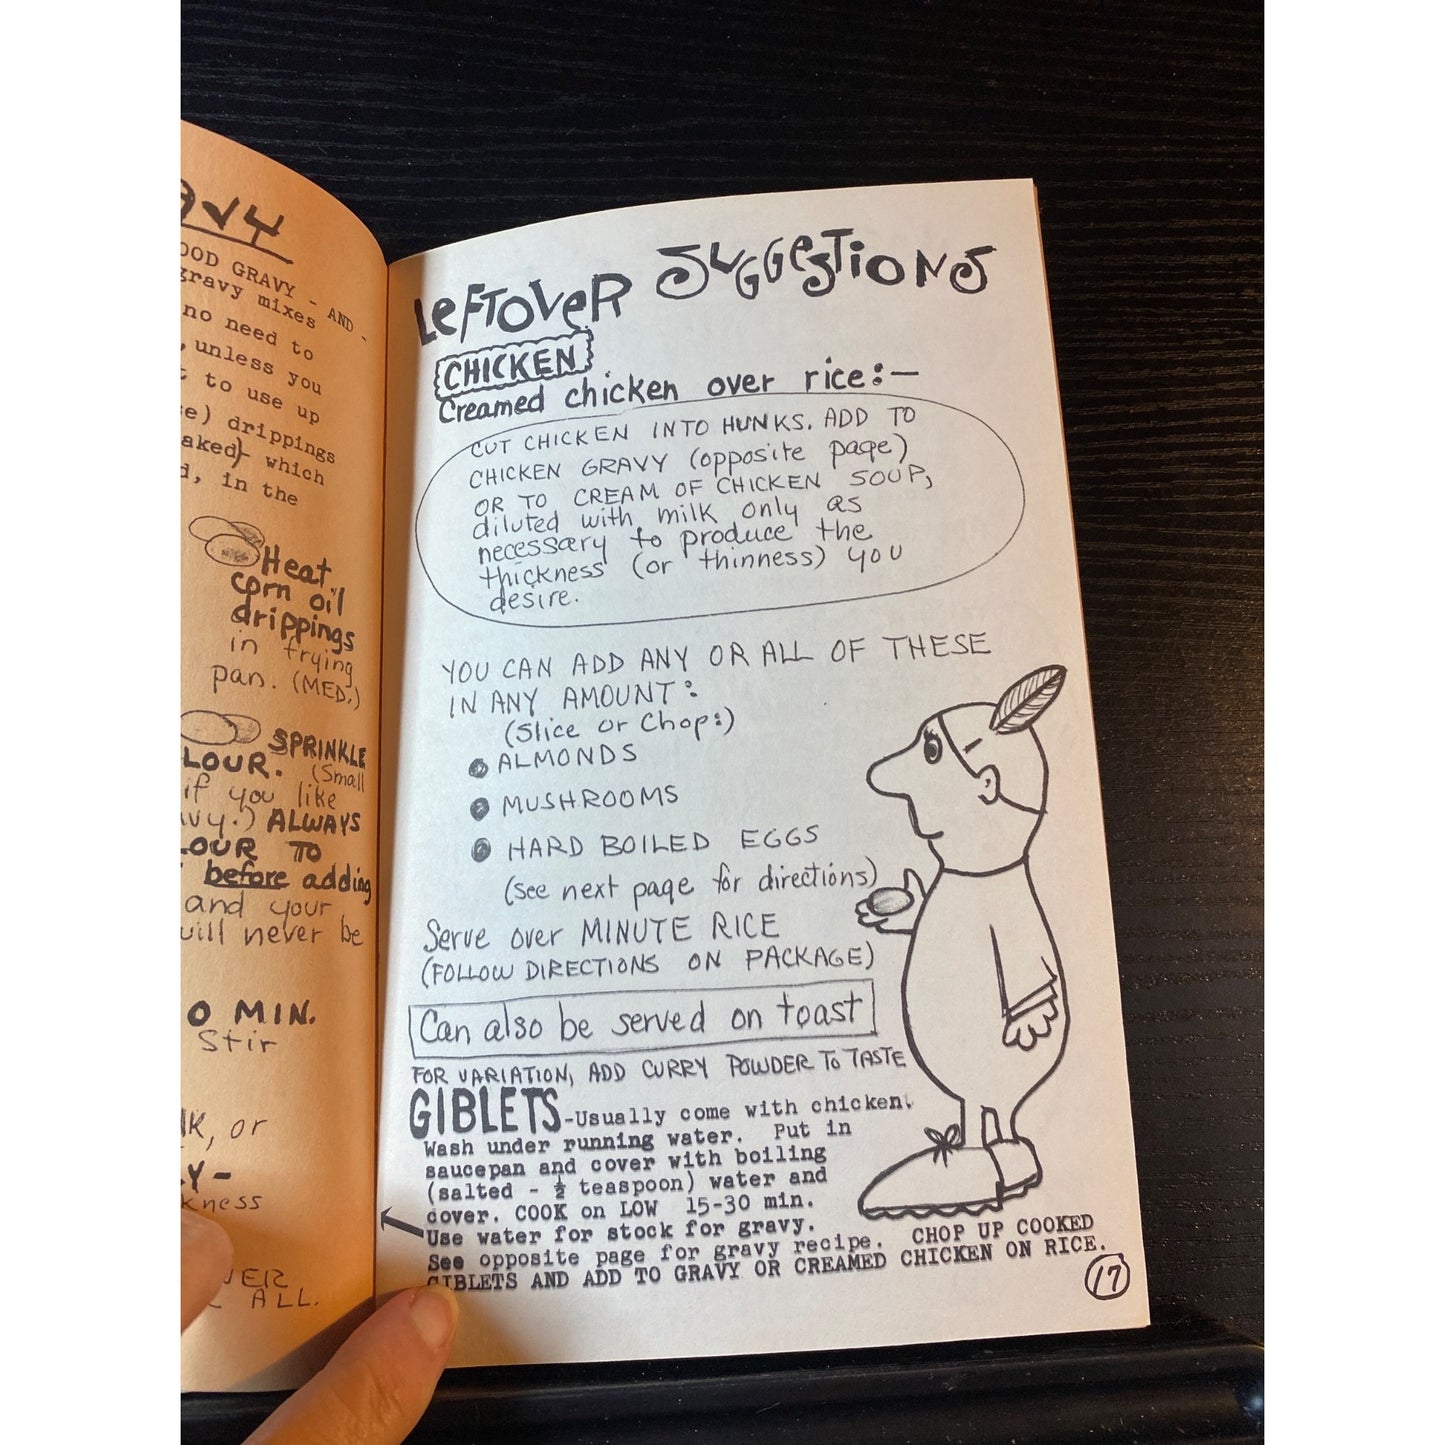 AVY
OOD GRAVY - AND -
gravy mixes
no need to
unless you
to use up
e) drippings
aked)- which
d, in the
Heat
corn oil
drippings
in frying
pan. (MED.)
SPRINKLE
LOUR. (Small
if you like
vy.) ALWAYS
LOUR TO
before adding
and your
will never be
0 MIN.
Stir
LK, or
Y-
kness
VER
ALL.
LEFTOVER SUGGESTIONS
CHICKEN
Creamed chicken over rice:-
CUT CHICKEN INTO HUNKS. ADD TO
CHICKEN GRAVY (opposite page)
OR TO CREAM OF CHICKEN SOUP,
diluted with milk only as
necessary to produce the
thickness (or thinness) you
desire.
YOU CAN ADD ANY OR ALL OF THESE
IN ANY AMOUNT:
(Slice or Chop:)
ALMONDS
MUSHROOMS
HARD BOILED EGGS
(see next page for directions)
Serve over MINUTE RICE
(FOLLOW DIRECTIONS ON PACKAGE)
Can also be served on toast
FOR VARIATION, ADD CURRY POWDER TO TASTE
GIBLETS-Usually come with chicken.
Wash under running water. Put in
saucepan and cover with boiling
(salted - ½ teaspoon) water and
cover. COOK on LOW 15-30 min.
Use water for stock for gravy.
See opposite page for gravy recipe. CHOP UP COOKED
GIBLETS AND ADD TO GRAVY OR CREAMED CHICKEN ON RICE.
17